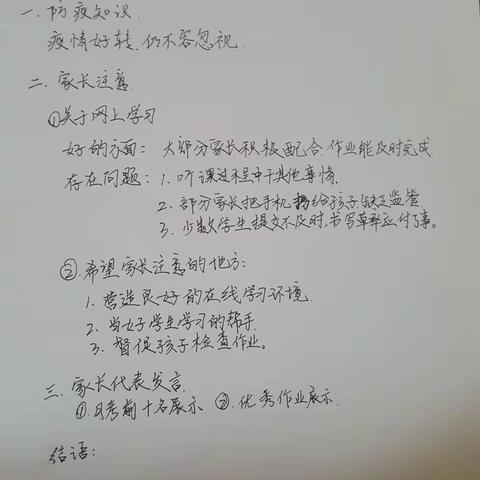 一.防疫知识.
疫情好转,仍不容忽视.
二.家长注意.
①关于网上学习
好的方面：大部分家长积极配合,作业能及时完成
存在问题：1.听课过程中干其他事情.
2.部分家长把手机扔给孩子,缺乏监管.
3.少数学生提交不及时,书写草率应付了事。
②.希望家长注意的地方：
1.营造良好的在线学习环境.
2.当好学生学习的帮手.
3.督促孩子检查作业。
三.家长代表发言.
①.月考前十名展示 ②.优秀作业展示.
结语：